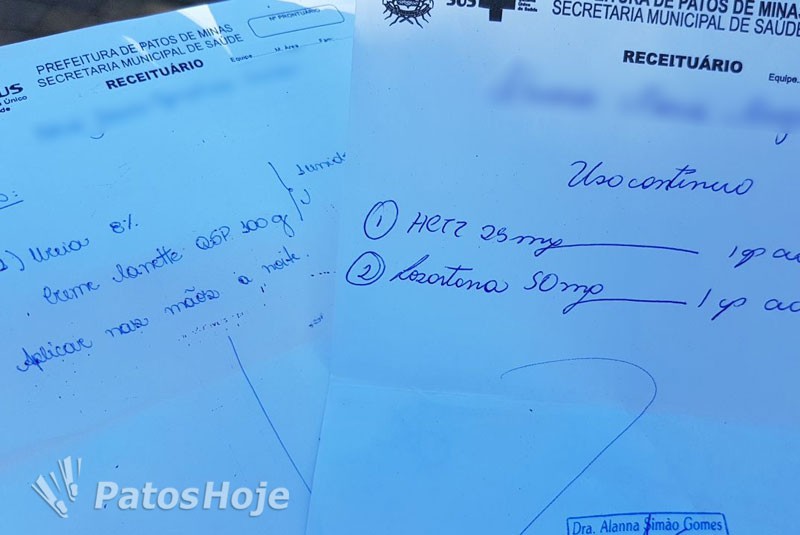 Nº PRONTUÁRIO
PREFEITURA DE PATOS DE MINAS
SECRETARIA MUNICIPAL DE SAÚDE
RECEITUÁRIO
Equipe M. Área Fam.
SUS
Único
de
1) Ureia 8%
Creme Lanette QSP 100g
Aplicar nas mãos a noite.
SUS
Único
de Saúde
PREFEITURA DE PATOS DE MINAS
SECRETARIA MUNICIPAL DE SAÚDE
RECEITUÁRIO
Equipe
Uso contínuo
1 HCTZ 25mg 1 cp ao
2 Losartana 50mg 1 cp ao
Dra. Alanna Simão Gomes
PatosHoje